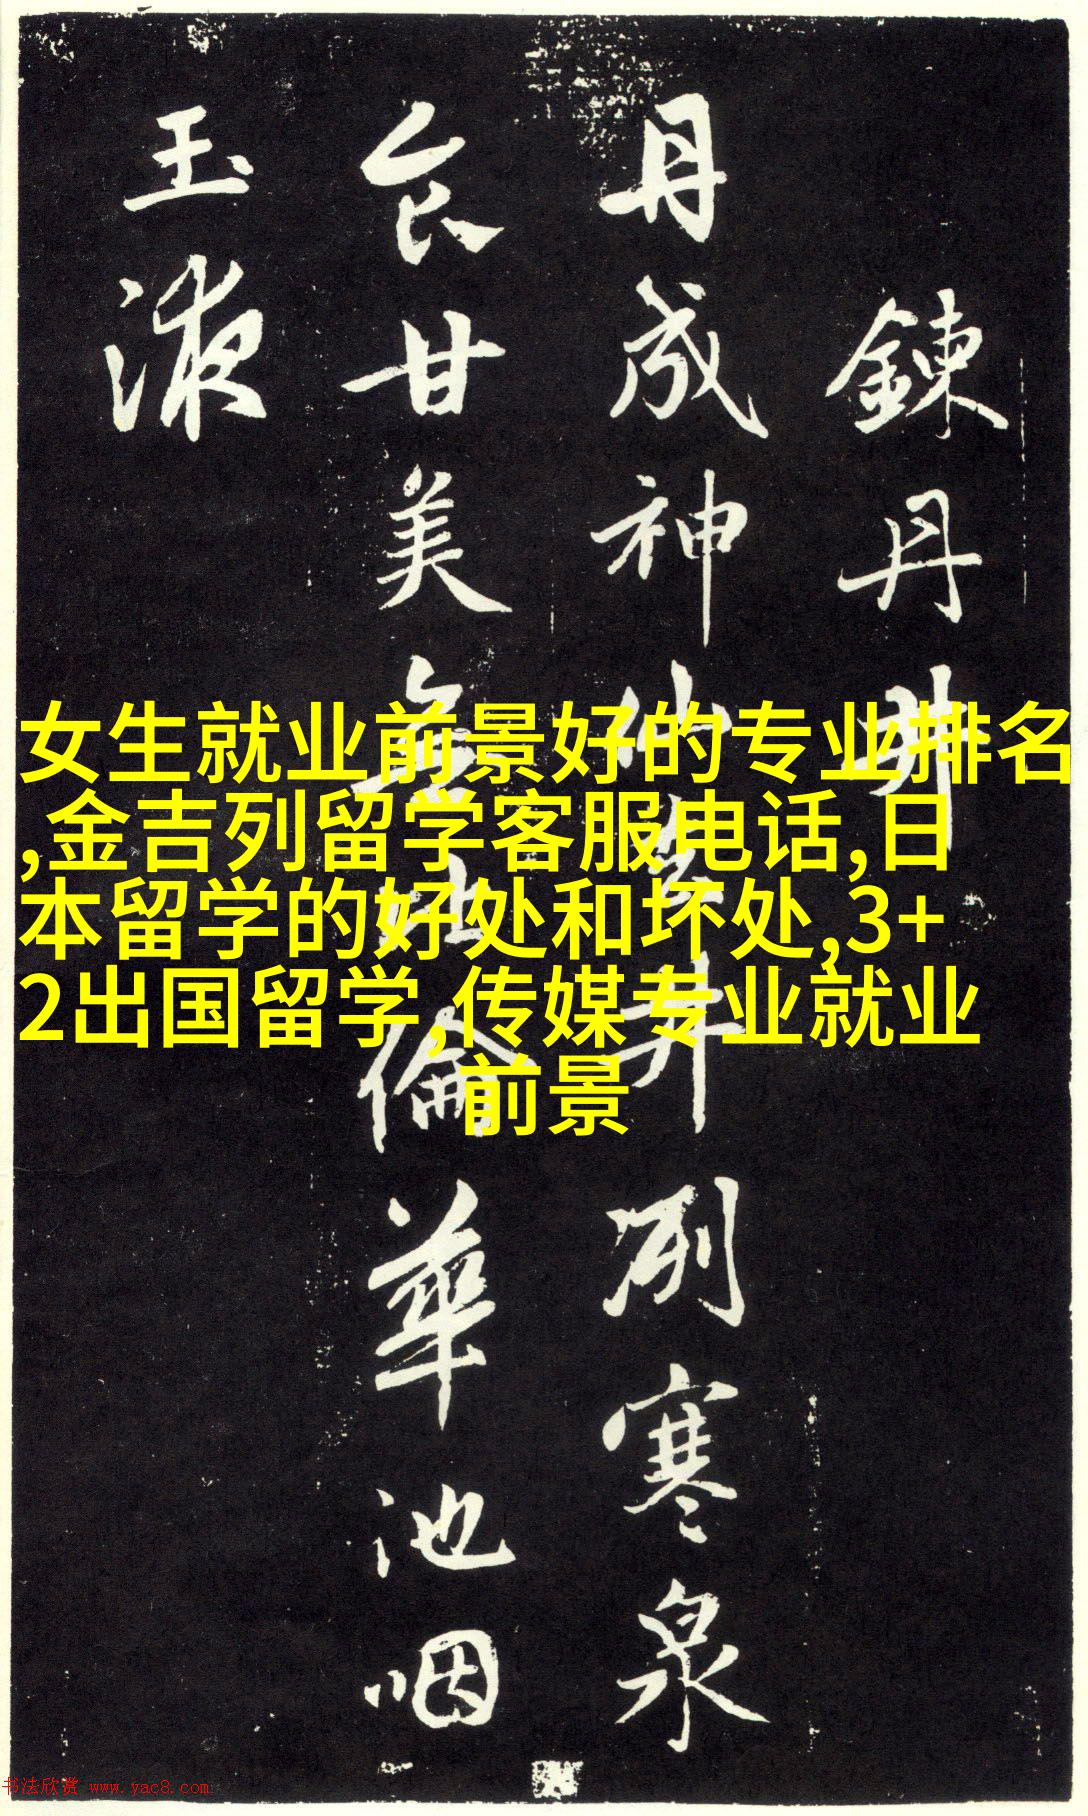 鍊丹井
丹成神仙去井冽寒泉
食甘美無比倫華池咽
玉液
女生就业前景好的专业排名
,金吉列留学客服电话,日
本留学的好处和坏处,3+
2出国留学,传媒专业就业
前景
书法欣赏 www.yac8.com